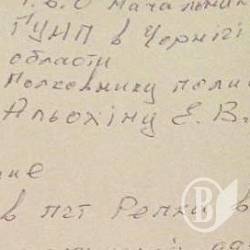 Т.В.О начальник
ГУНП в Черніг
області
Полковнику поліц
Альохіну Є. В.
ие
в пгт Репки в